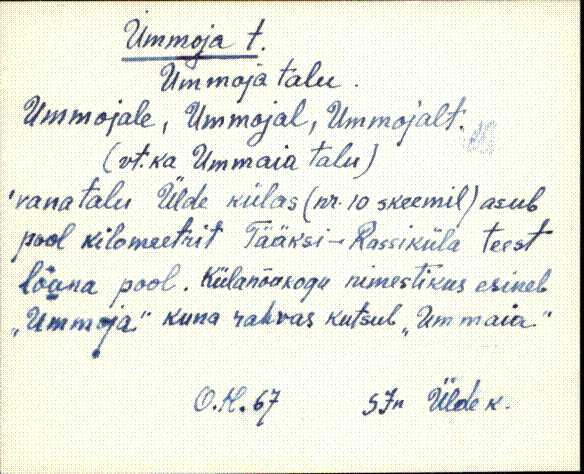 Ümmoja t.
Ümmoja talu.
Ummojale, Ummojal, Ummojalt.
(vt. ka Ummaia talu)
vana talu Ülde külas (nr. 10 skeemil) asub
pool kilomeetrit Tääksi - Rassiküla teest
lõuna pool. Külanõukogu nimestikus esineb
„Ümmoja" kuna rahvas kutsub „Ummaia"
O.K. 67 SJn Ülde k.